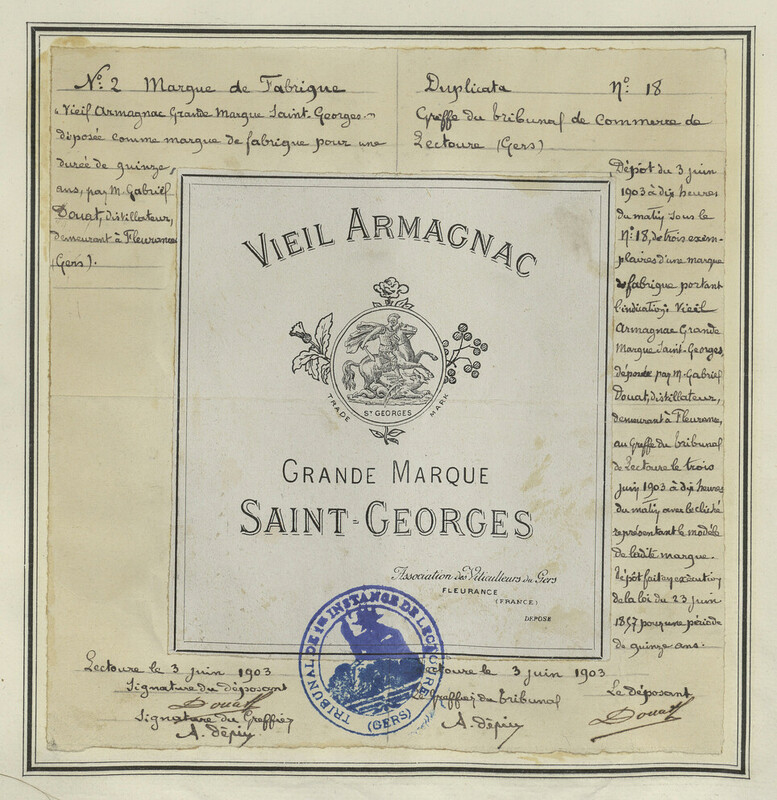 Nº 2 Marque de Fabrique
"Vieil Armagnac Grande Marque Saint-Georges"
déposée comme marque de fabrique pour une
durée de quinze
ans, par M. Gabriel
Douat, distillateur,
demeurant à Fleurance
(Gers).
Duplicata Nº 18
Greffe du tribunal de Commerce de
Lectoure (Gers)
Dépôt du 3 juin
1903 à dix heures
du matin sous le
Nº 18, de trois exem-
plaires d'une marque
de fabrique portant
l'indication: Vieil
Armagnac Grande
Marque Saint-Georges,
déposée par M. Gabriel
Douat, distillateur,
demeurant à Fleurance,
au Greffe du tribunal
de Lectoure le trois
juin 1903 à dix heures
du matin avec le cliché
représentant le modèle
de ladite marque.
Dépôt fait en exécution
de la loi du 23 juin
1857 pour une période
de quinze ans.
VIEIL ARMAGNAC
TRADE MARK
ST GEORGES
GRANDE MARQUE
SAINT-GEORGES
Association des Viticulteurs du Gers
FLEURANCE
(FRANCE)
DÉPOSÉ
TRIBUNAL DE 1RE INSTANCE DE LECTOURE
(GERS)
Lectoure le 3 juin 1903
Signature du déposant
Douat
Signature du Greffier
A. dépin
Lectoure le 3 juin 1903
Le Greffier du tribunal
A. dépin
Le déposant
Douat